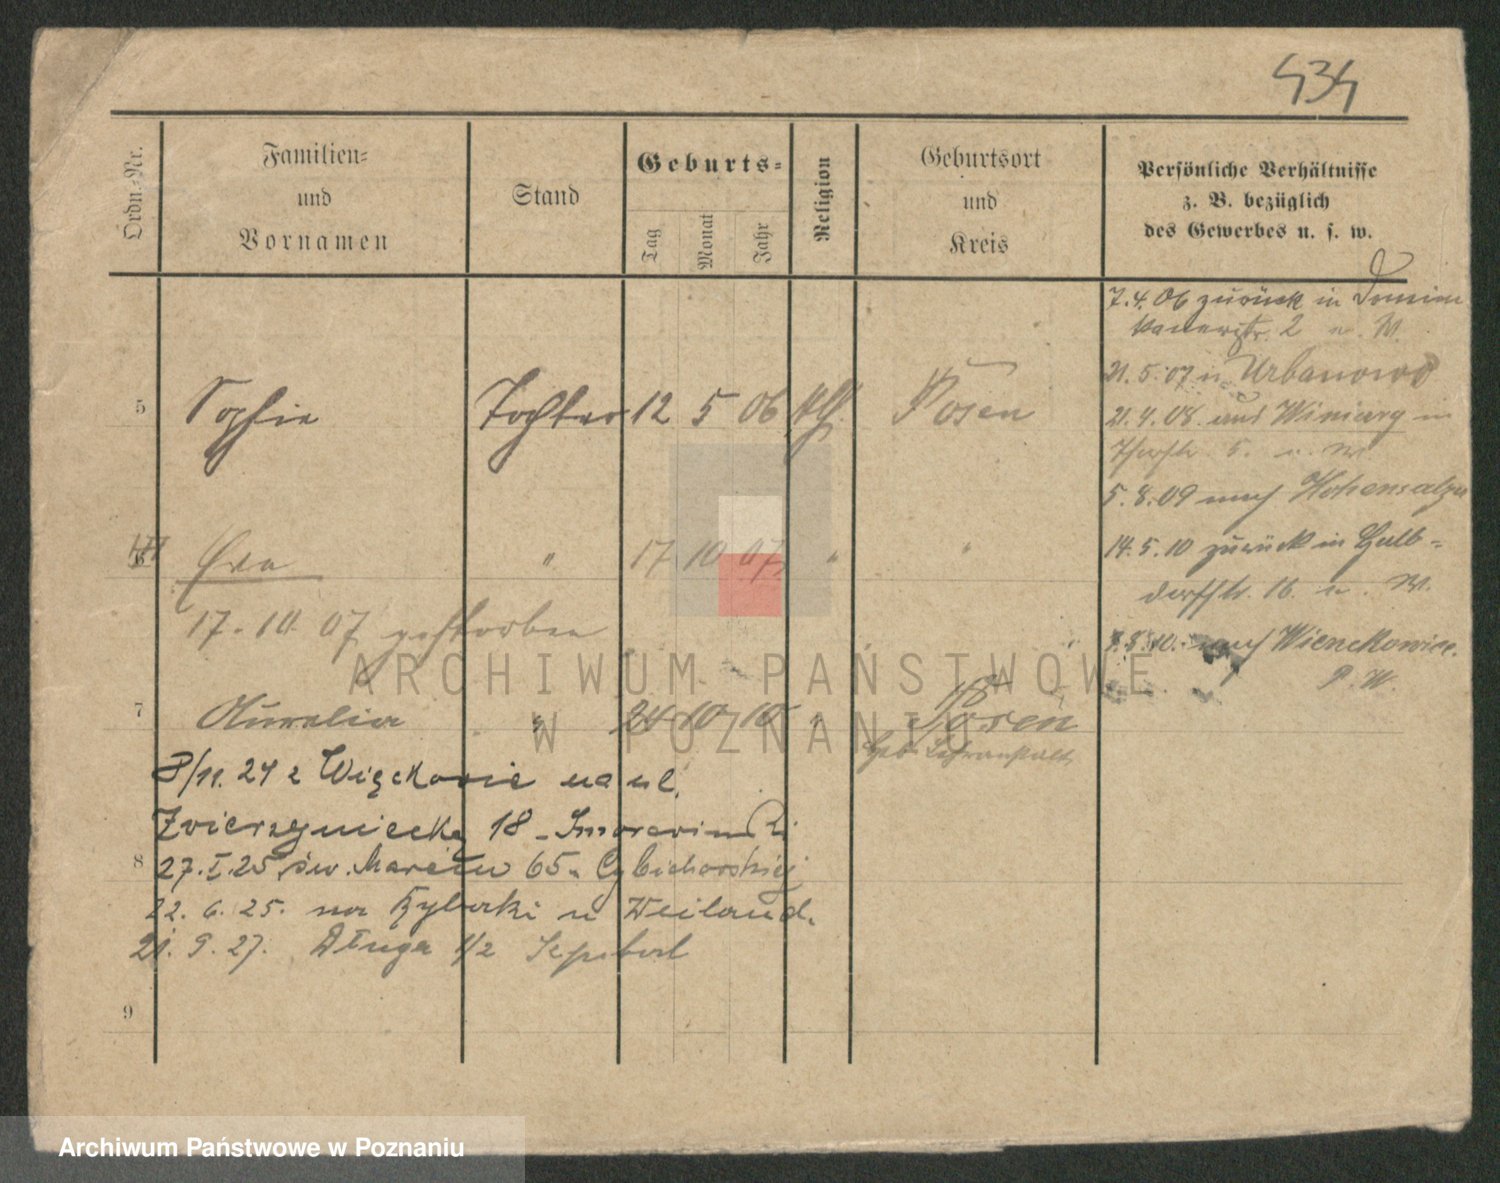 434
Ordn.-Nr.
Familien-
und
Vornamen
Stand
Geburts-
Tag
Monat
Jahr
Religion
Geburtsort
und
Kreis
Persönliche Verhältnisse
z. B. bezüglich
des Gewerbes u. s. w.
7.4.06 zurück in Domini
kanerstr. 2 u. W.
21.5.07 n. Urbanowo
5 Sophie Tochter 12 5 06 kth. Posen
21.4.08. aus Winiary in
5. u. W.
5.8.09 nach Hohensalza
6 Eva " 17 10 07 " "
14.5.10 zurück in Halb-
dorfstr. 16. u. W.
17.10.07 gestorben
10. nach Wienckowice.
P. W.
7 Aurelia " 24 10 10 " Posen
Geb. Lehranstalt
3/11. 24 z Więckowic na ul.
Zwierzyniecką 18 -
8
27.I.25 św. Marcin 65
22.6.25. na Rybaki u Weiland.
21.9.27. Długa 1/2
9
ARCHIWUM PAŃSTWOWE
W POZNANIU
Archiwum Państwowe w Poznaniu